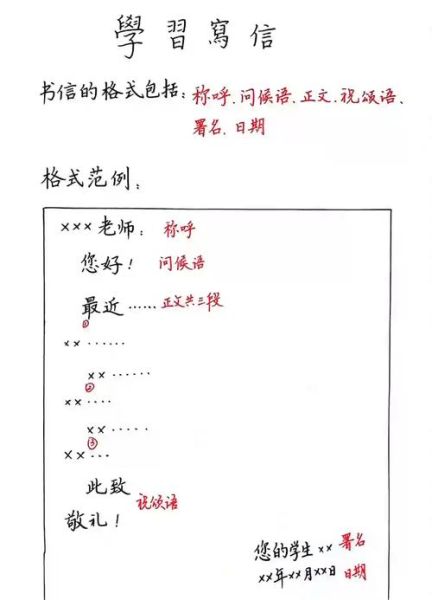 學習寫信
书信的格式包括：称呼、问候语、正文、祝颂语、
署名、日期
格式范例：
××× 老师： 称呼
您好！ 问候语
最近 …… 正文共三段
①
×× ……
×× ……
②
×× ….
×× ……
③
×× …
此致
祝颂语
敬礼！
您的学生 ×× 署名
××年××月××日 日期